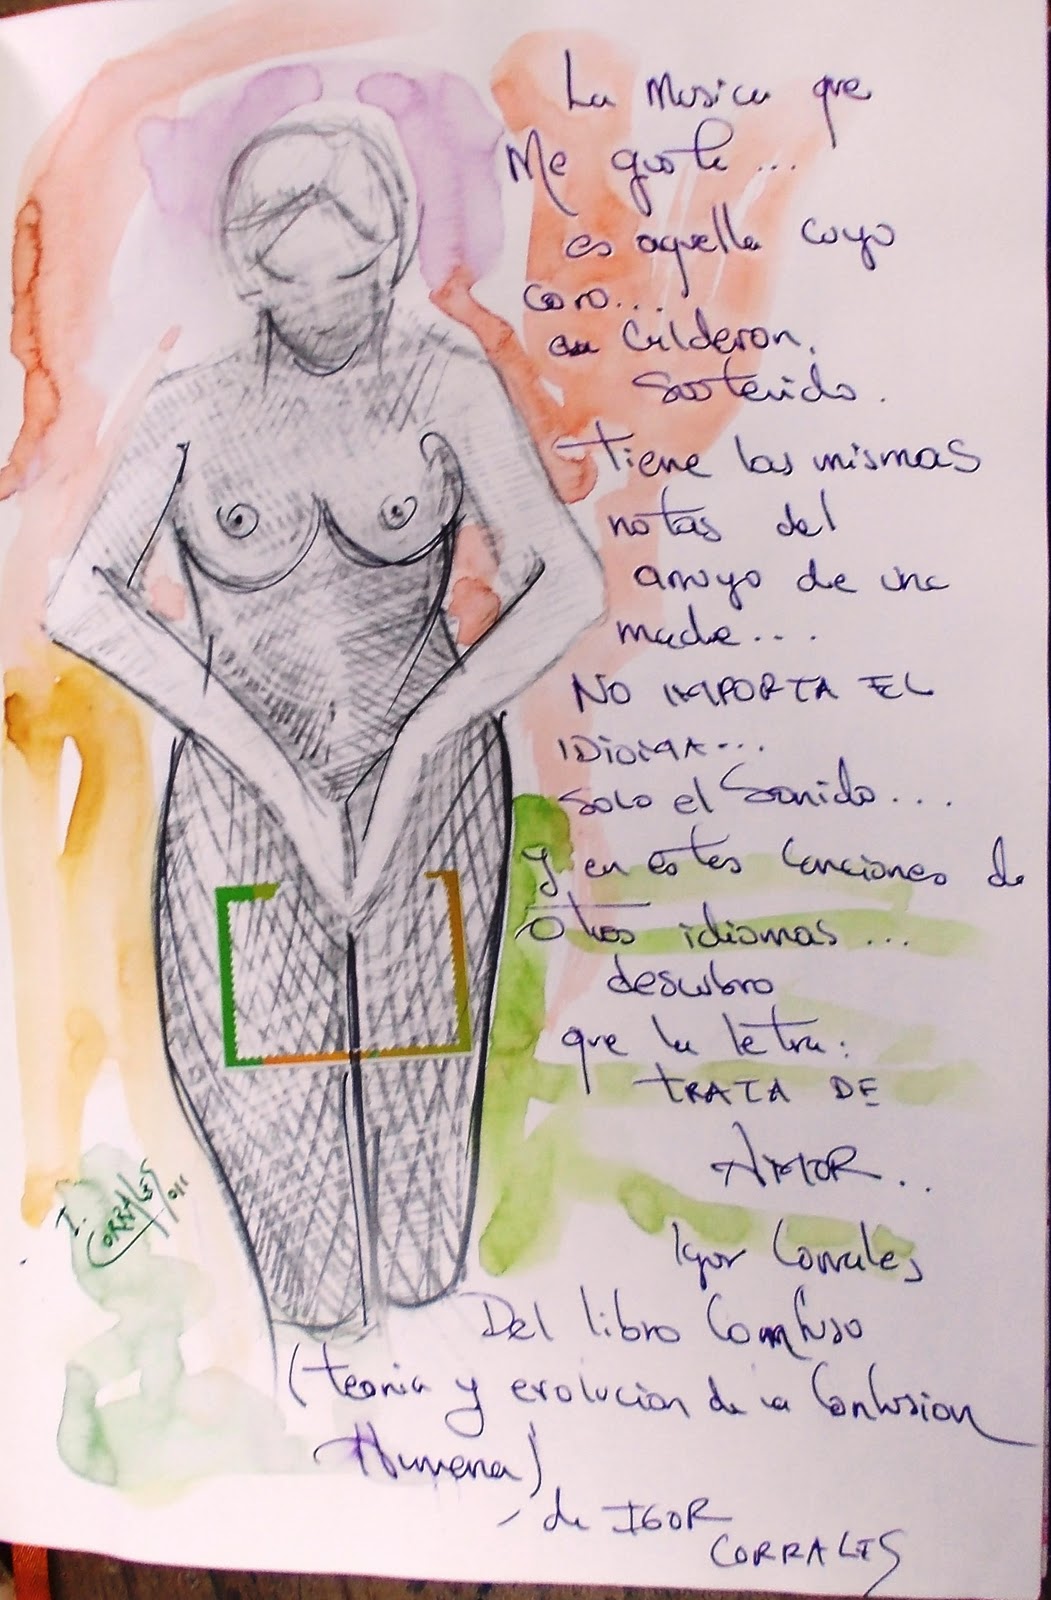 La Musica que
Me gusta...
es aquella cuyo
coro...
en Calderon.
Sostenido.
tiene las mismas
notas del
arroyo de una
madre...
NO IMPORTA EL
IDIOMA...
Solo el Sonido....
y en estas Canciones de
Otros idiomas...
descubro
que la letra:
TRATA DE
AMOR..
Igor Corrales
Del libro Comfuso
(teoria y evolucion de la Confusion
Humana)
de IGOR
CORRALES
I.
CORRALES
011